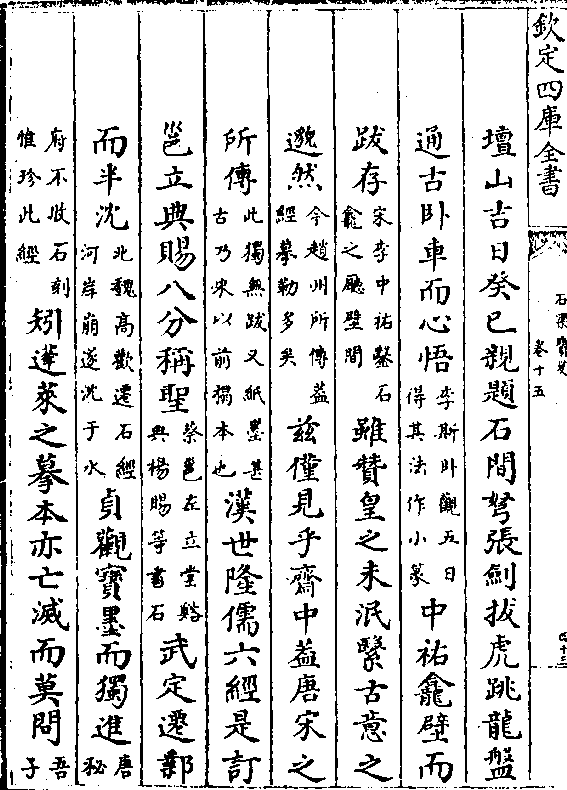 欽定四庫全書
石渠寶笈
卷十五
四十三
壇山吉日癸巳親題石間弩張劍拔虎跳龍盤
通古卧車而心悟李斯卧觀五日得其法作小篆中祐龕壁而
跋存宋李中祐鑿石龕之廳壁間雖贊皇之未泯繄古意之
邈然今趙州所傳葢經摹勒多矣兹僅見乎齋中葢唐宋之
所傳此獨無跋又紙墨甚古乃宋以前搨本也漢世隆儒六經是訂
邕立典賜八分稱聖蔡邕左立堂谿典楊賜等書石武定遷鄴
而半沈北魏高歡遷石經河岸崩遂沈于水貞觀寶墨而獨進唐秘
府不收石刻惟珍此經矧蓬萊之摹本亦亡滅而莫問吾子